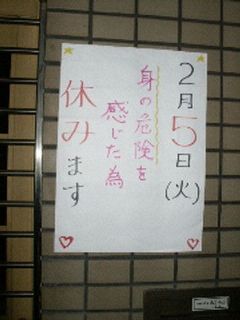 2月5日(火)
身の危険を
感じた為
休みます